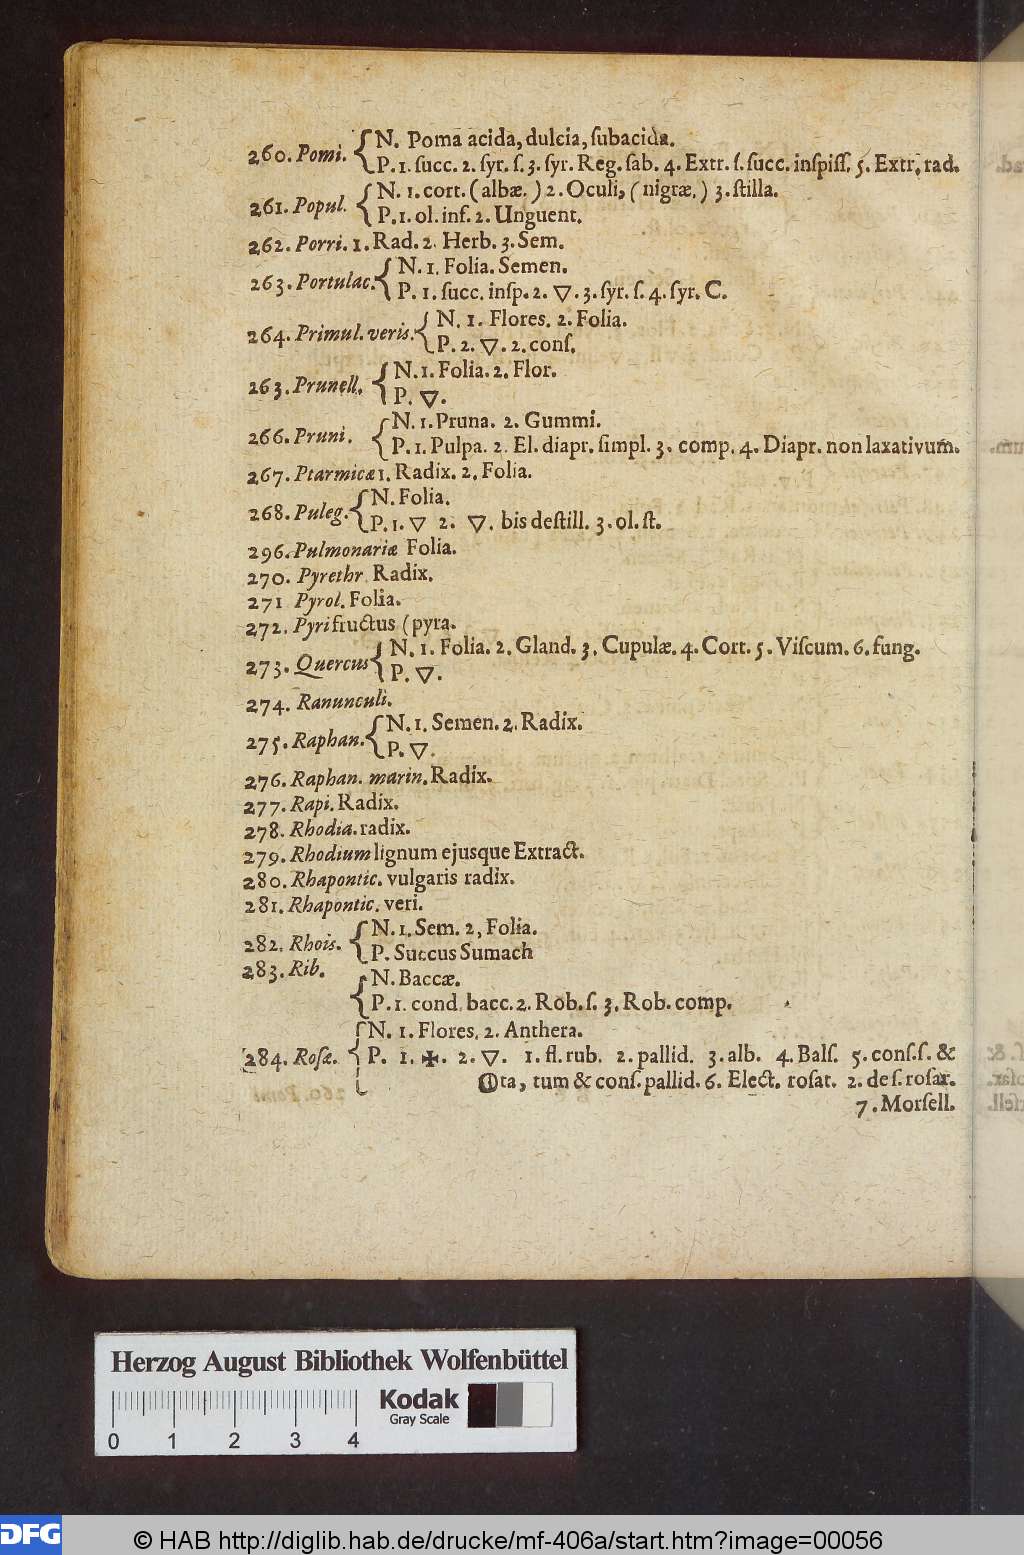 260. Pomi. { N. Poma acida, dulcia, ſubacida.
P. 1. ſucc. 2. ſyr. ſ. 3. ſyr. Reg. ſab. 4. Extr. ſ. ſucc. inſpiſſ. 5. Extr. rad.
261. Popul. { N. 1. cort. (albæ.) 2. Oculi, (nigræ.) 3. ſtilla.
P. 1. ol. inf. 2. Unguent.
262. Porri. 1. Rad. 2. Herb. 3. Sem.
263. Portulac. { N. 1. Folia. Semen.
P. 1. ſucc. inſp. 2. 🜄. 3. ſyr. ſ. 4. ſyr. C.
264. Primul. veris. { N. 1. Flores. 2. Folia.
P. 2. 🜄. 2. conſ.
263. Prunell. { N. 1. Folia. 2. Flor.
P. 🜄.
266. Pruni. { N. 1. Pruna. 2. Gummi.
P. 1. Pulpa. 2. El. diapr. ſimpl. 3. comp. 4. Diapr. non laxativum.
267. Ptarmicæ 1. Radix. 2. Folia.
268. Puleg. { N. Folia.
P. 1. 🜄 2. 🜄. bis deſtill. 3. ol. ſt.
296. Pulmonariæ Folia.
270. Pyrethr. Radix.
271 Pyrol. Folia.
272. Pyri fructus (pyra.
273. Quercus { N. 1. Folia. 2. Gland. 3. Cupulæ. 4. Cort. 5. Viſcum. 6. fung.
P. 🜄.
274. Ranunculi.
275. Raphan. { N. 1. Semen. 2. Radix.
P. 🜄.
276. Raphan. marin. Radix.
277. Rapi. Radix.
278. Rhodia. radix.
279. Rhodium lignum ejusque Extract.
280. Rhapontic. vulgaris radix.
281. Rhapontic. veri.
282. Rhois. { N. 1. Sem. 2, Folia.
P. Succus Sumach
283. Rib. { N. Baccæ.
P. 1. cond. bacc. 2. Rob. ſ. 3. Rob. comp.
284. Roſæ. { N. 1. Flores. 2. Anthera.
P. 1. ✠. 2. 🜄. 1. fl. rub. 2. pallid. 3. alb. 4. Balſ. 5. conſ. ſ. &
ta, tum & conſ. pallid. 6. Elect. roſat. 2. de ſ. roſar.
7. Morſell.
Herzog August Bibliothek Wolfenbüttel
Kodak
Gray Scale
0 1 2 3 4
DFG © HAB http://diglib.hab.de/drucke/mf-406a/start.htm?image=00056